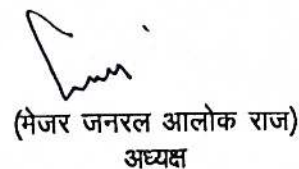 (मेजर जनरल आलोक राज)
अध्यक्ष